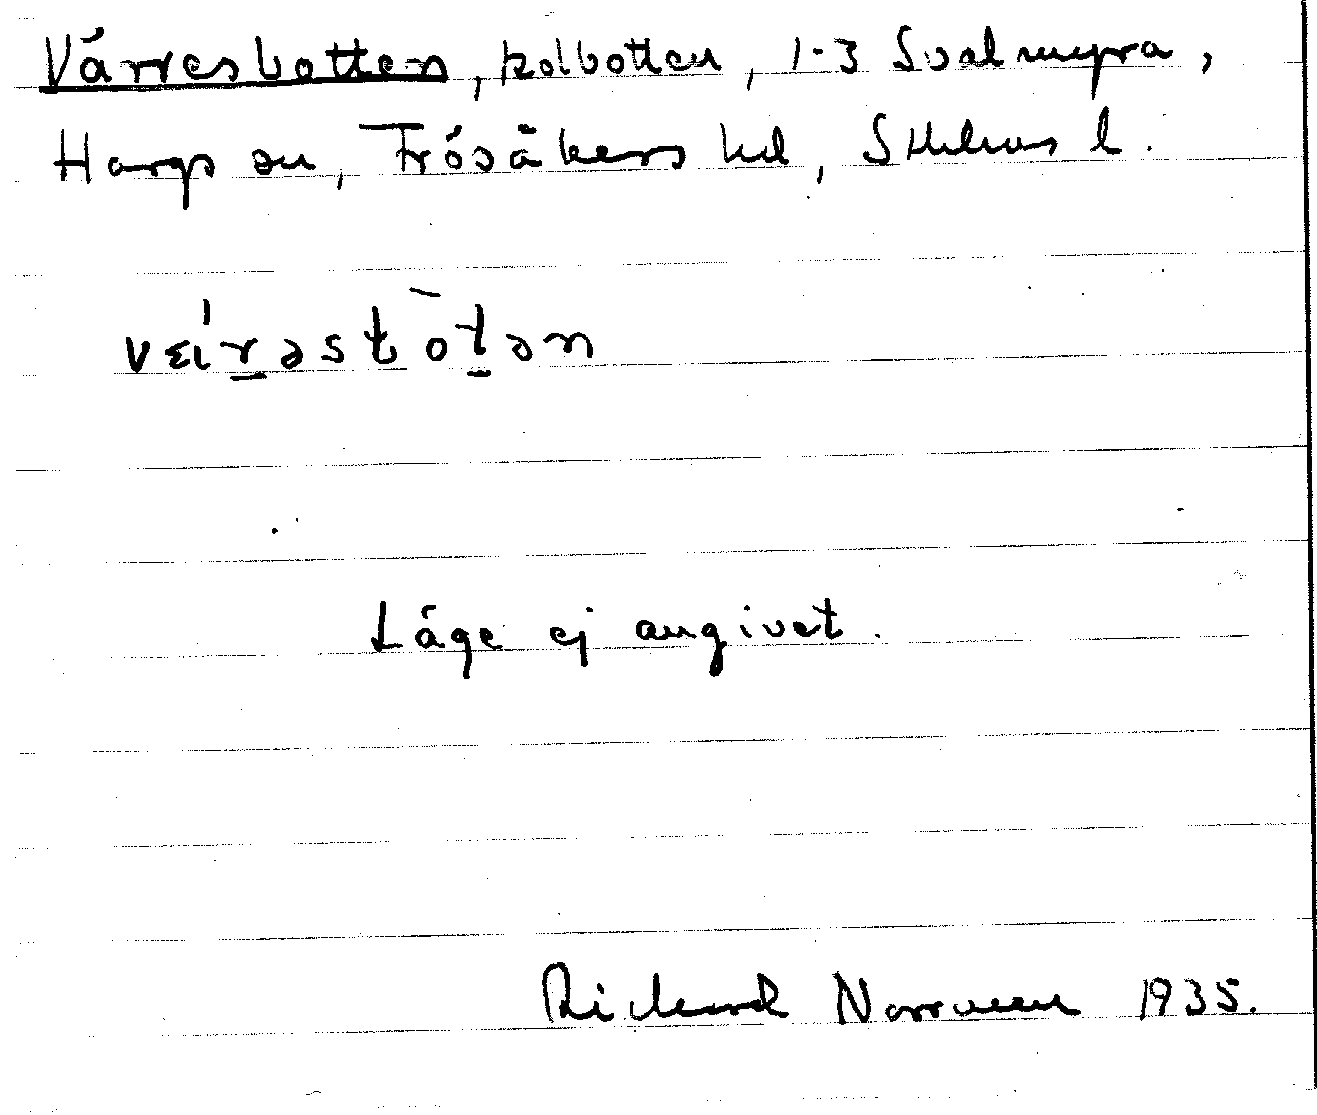 Värresbotten, kolbotten, 1-3 Svalmyra,
Hargs sn, Frösåkers hd, Sthlms l.
vɛi'rəstòtən
Läge ej angivet.
Rickard Norrmen 1935.